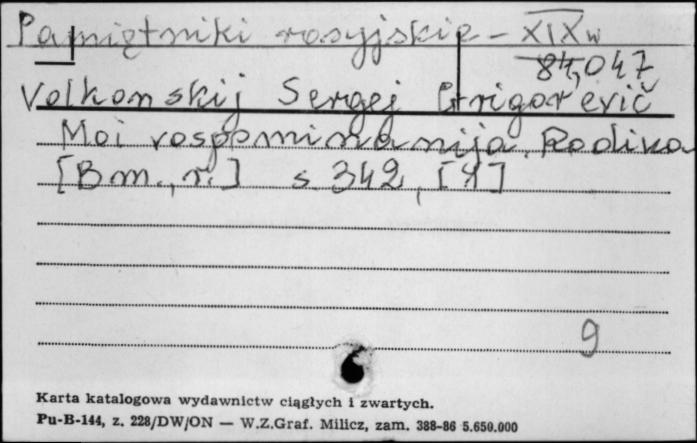 Pamiętniki rosyjskie - XIX w
84,047
Volkonskij Sergej Grigor'evič
Moi vospominanija. Rodina
[B m., r.] s. 342, [4]
9
Karta katalogowa wydawnictw ciągłych i zwartych.
Pu-B-144, z. 228/DW/ON — W.Z.Graf. Milicz, zam. 388-86 5.650.000